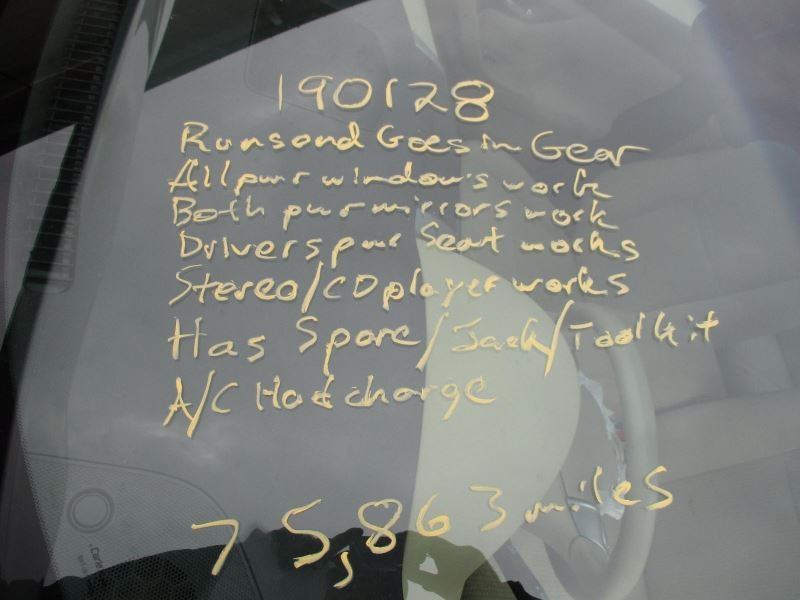 190128
Runs and Goes in Gear
All pwr windows work
Both pwr mirrors work
Drivers pwr Seat works
Stereo/CD player works
Has Spare/Jack/Toolkit
A/C Had charge
75,863 miles